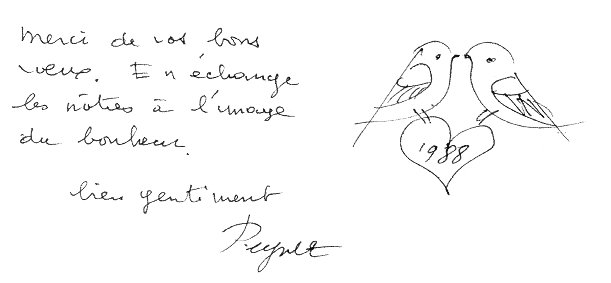 Merci de vos bons
vœux. En échange
les nôtres à l'image
du bonheur.
bien gentiment
1988